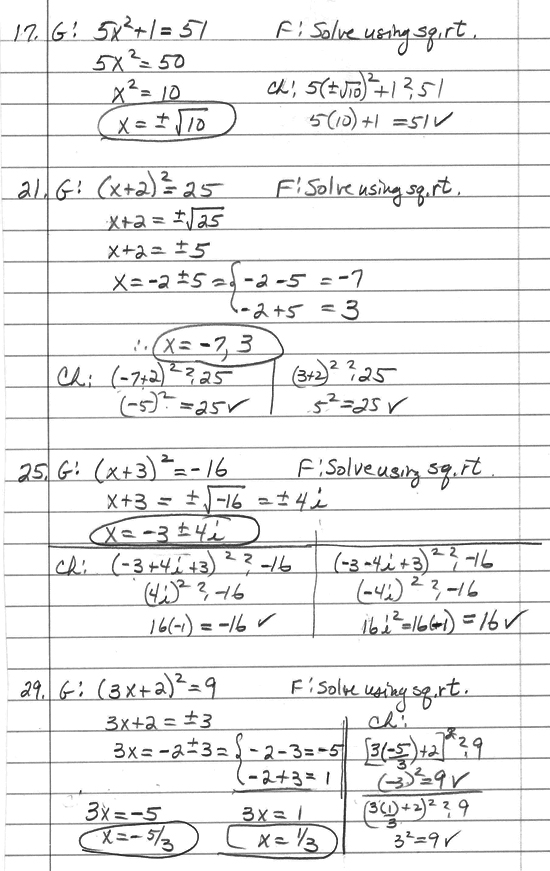 17. G: 5x²+1=51 F: Solve using sq.rt.
5x²=50
x²=10 Ch: 5(±√10)²+1 ?, 51
x=±√10 5(10)+1 =51✓
21. G: (x+2)²=25 F: Solve using sq.rt.
x+2=±√25
x+2=±5
x=-2±5={-2-5 =-7
-2+5 =3
∴ x=-7,3
Ch: (-7+2)² ?, 25 (3+2)² ?, 25
(-5)²=25✓ 5²=25✓
25. G: (x+3)²=-16 F: Solve using sq.rt.
x+3=±√-16=±4i
x=-3±4i
Ch: (-3+4i+3)² ?, -16 (-3-4i+3)² ?, -16
(4i)² ?, -16 (-4i)² ?, -16
16(-1)=-16✓ 16i²=16(-1)=16✓
29. G: (3x+2)²=9 F: Solve using sq.rt.
3x+2=±3 Ch:
3x=-2±3={-2-3=-5 [3(-5/3)+2]² ?, 9
-2+3=1 (-3)²=9✓
3x=-5 3x=1 (3(1)/3+2)² ?, 9
x=-5/3 x=1/3 3²=9✓